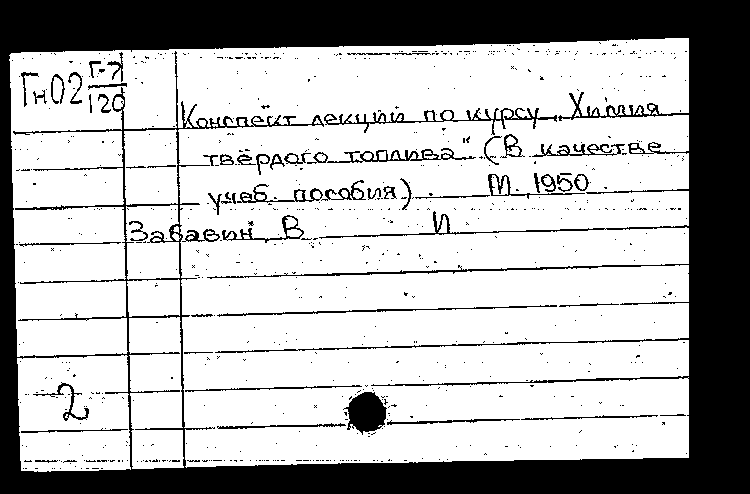 Гн02 Г-7/120
Конспект лекций по курсу „Химия
твёрдого топлива" (В качестве
учеб. пособия). М. 1950
Забавин, В И
2